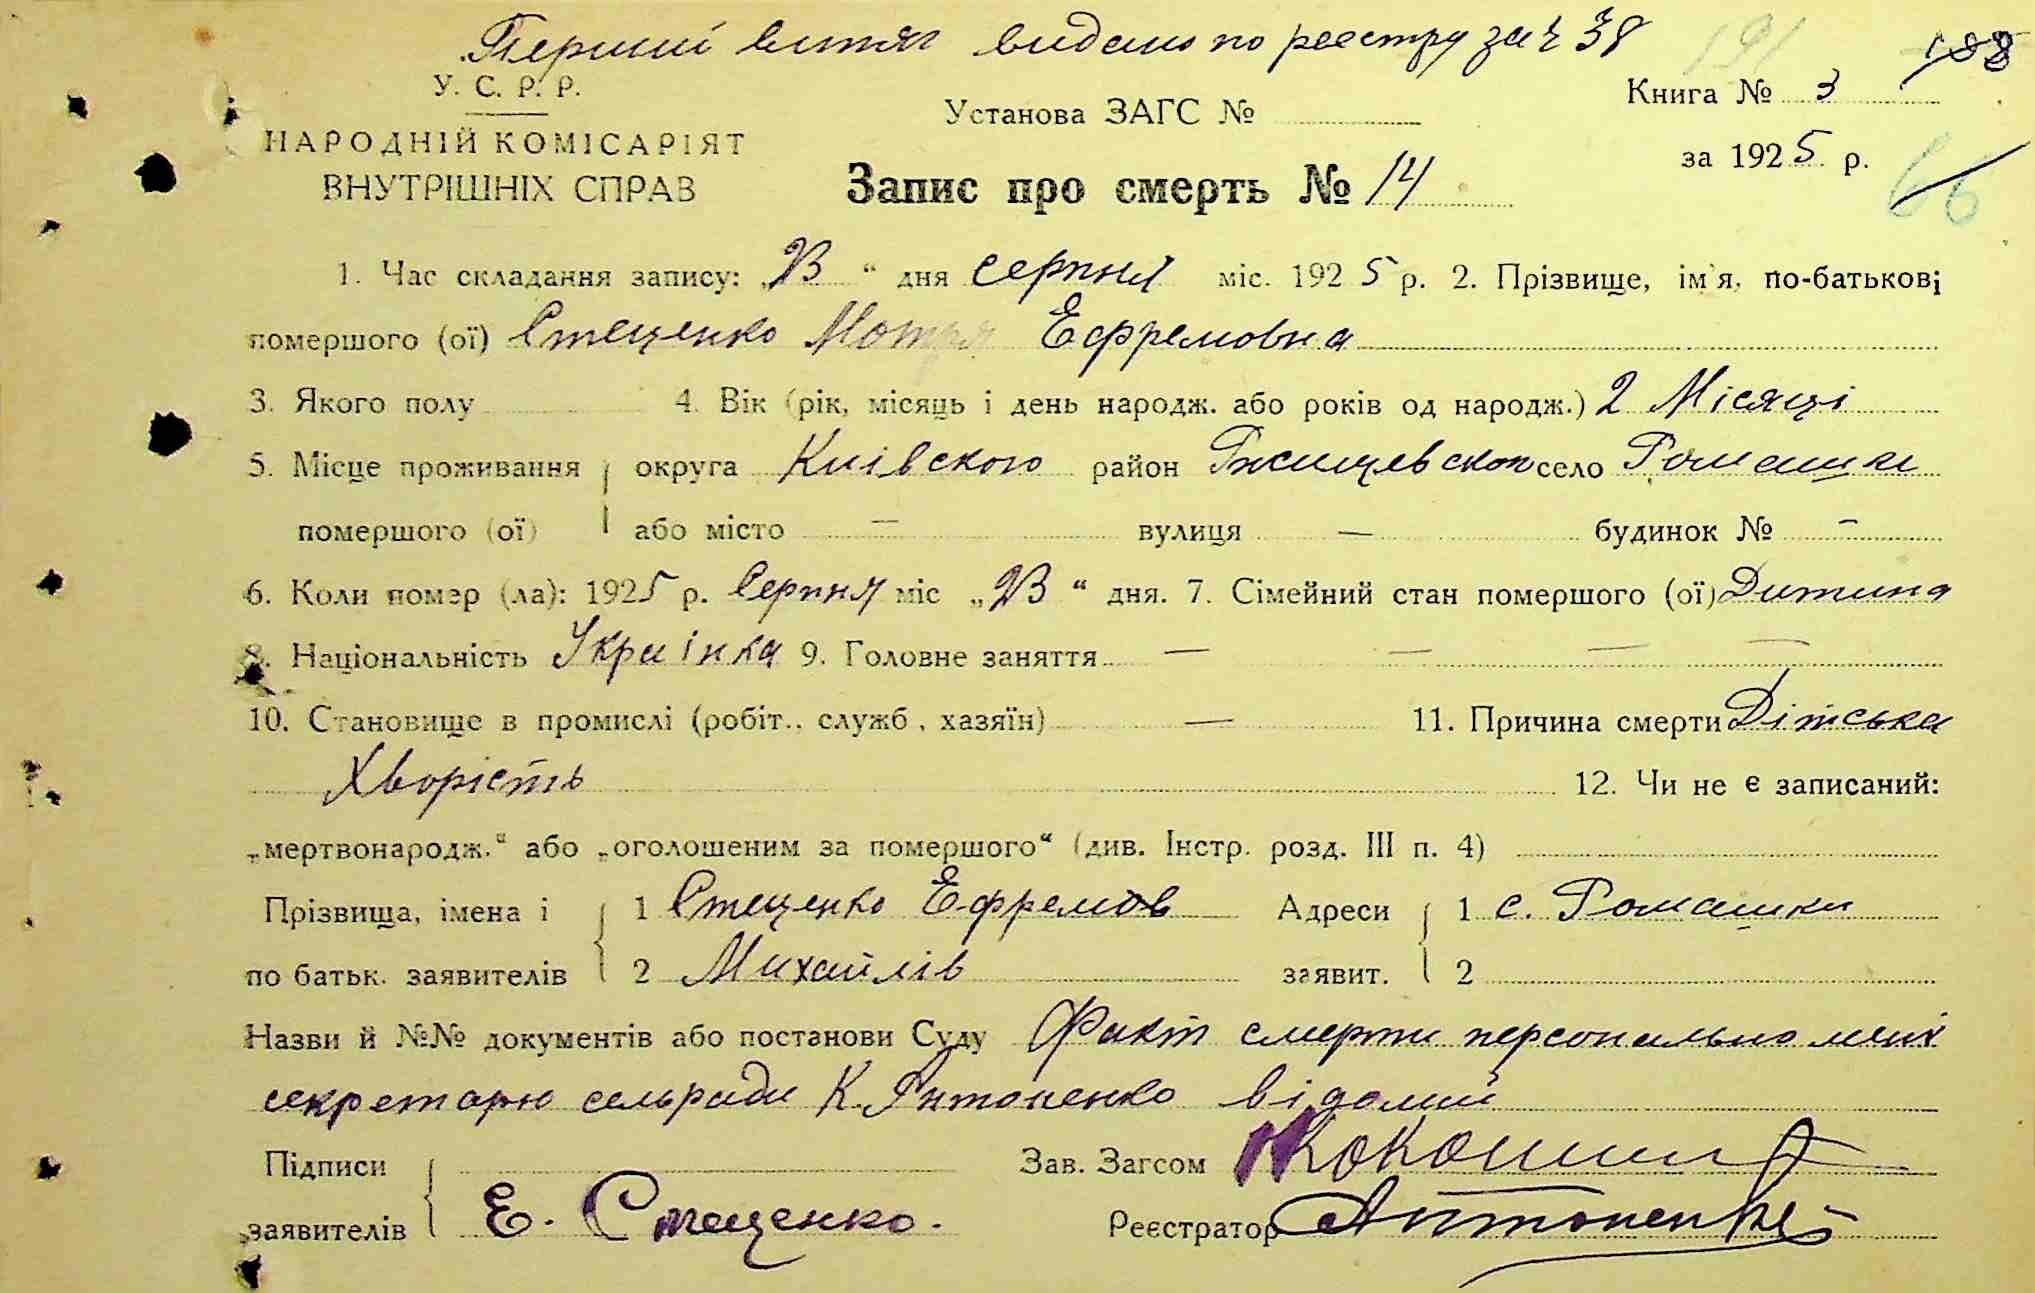 Перший витяг видано по реестру за ч 38
191 188
У. С. Р. Р.
НАРОДНІЙ КОМІСАРІЯТ
ВНУТРІШНІХ СПРАВ
Установа ЗАГС №
Запис про смерть № 14
Книга № 3
за 1925 р.
66
1. Час складання запису: „23“ дня серпня міс. 1925 р. 2. Прізвище, ім'я, по-батькові
помершого (ої) Стеценко Мотря Ефремовна
3. Якого полу 4. Вік (рік, місяць і день народж. або років од народж.) 2 Місяці
5. Місце проживання округа Київского район Ржищевског село Ромашки
помершого (ої) або місто — вулиця — будинок № -
6. Коли помер (ла): 1925 р. Серпня міс „23“ дня. 7. Сімейний стан помершого (ої) Дитина
8. Національність Украінка 9. Головне заняття — — — —
10. Становище в промислі (робіт., служб, хазяїн) — 11. Причина смерти Дітська
Хворість 12. Чи не є записаний:
„мертвонародж.“ або „оголошеним за помершого“ (див. Інстр. розд. III п. 4)
Прізвища, імена і 1 Стеценко Ефремов Адреси 1 с. Ромашки
по батьк. заявителів 2 Михайлів заявит. 2
Назви й №№ документів або постанови Суду Факт смерти персонально мині
секретарю сельради К. Антоненко відомий
Підписи Зав. Загсом
заявителів Е. Стеценко. Реєстратор Антоненко